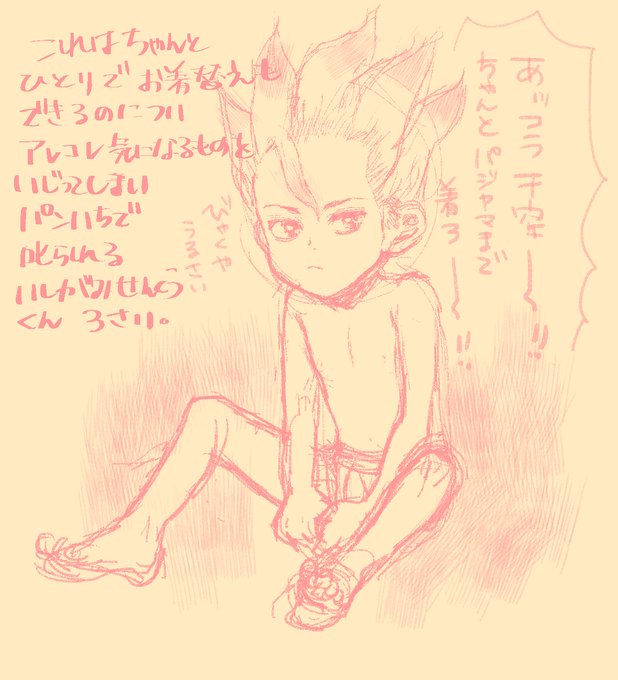 これはちゃんと
ひとりでお着替えも
できるのについ
アレコレ気になるものを
いじってしまい
パンいちで
叱られる
いしがみせんくう
くん 3さい。
あッコラ千空〜!!
ちゃんとパジャマまで
着ろ〜!!
びゃくや
うるさい